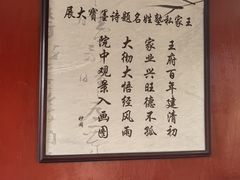 王家私塾姓名題诗墨寶大展
王府百年建清初
家业兴旺德不孤
大彻大悟经风雨
院中观景入画图